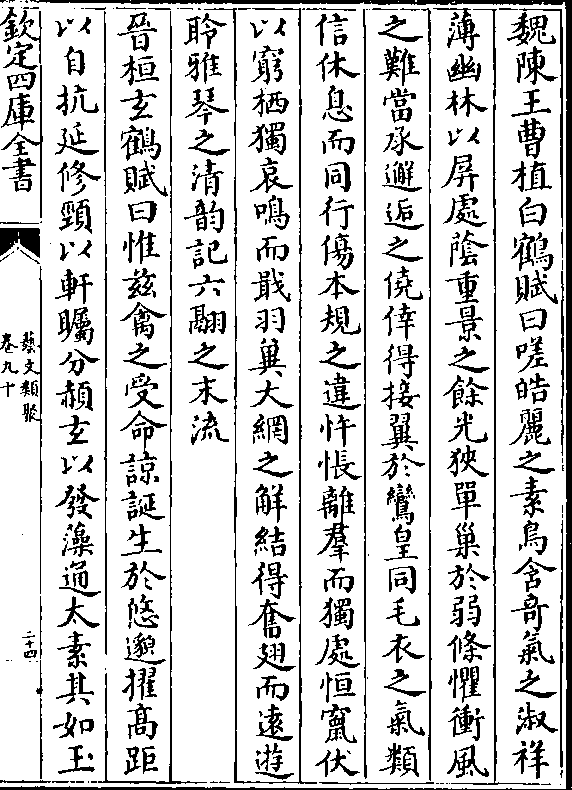 魏陳王曹植白鶴賦曰嗟皓麗之素鳥含竒氣之淑祥
薄幽林以屏處蔭重景之餘光狹單巢於弱條懼衝風
之難當承邂逅之僥倖得接翼於鸞皇同毛衣之氣類
信休息而同行傷本規之違忤悵離羣而獨處恒竄伏
以窮栖獨哀鳴而戢羽兾大網之解結得奮翅而遠遊
聆雅琴之清韵記六翮之末流
晉桓玄鶴賦曰惟兹禽之受命諒誕生於悠邈擢髙距
以自抗延修頸以軒矚分頳玄以發藻通太素其如玉
欽定四庫全書
藝文類聚
卷九十
二十四